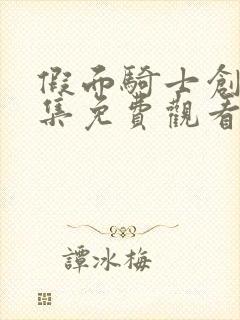 假面騎士創
集免費觀看
譚冰梅